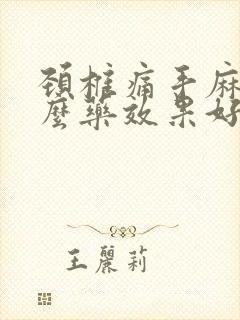 頚椎痛手麻
麼藥效果好
王麗莉